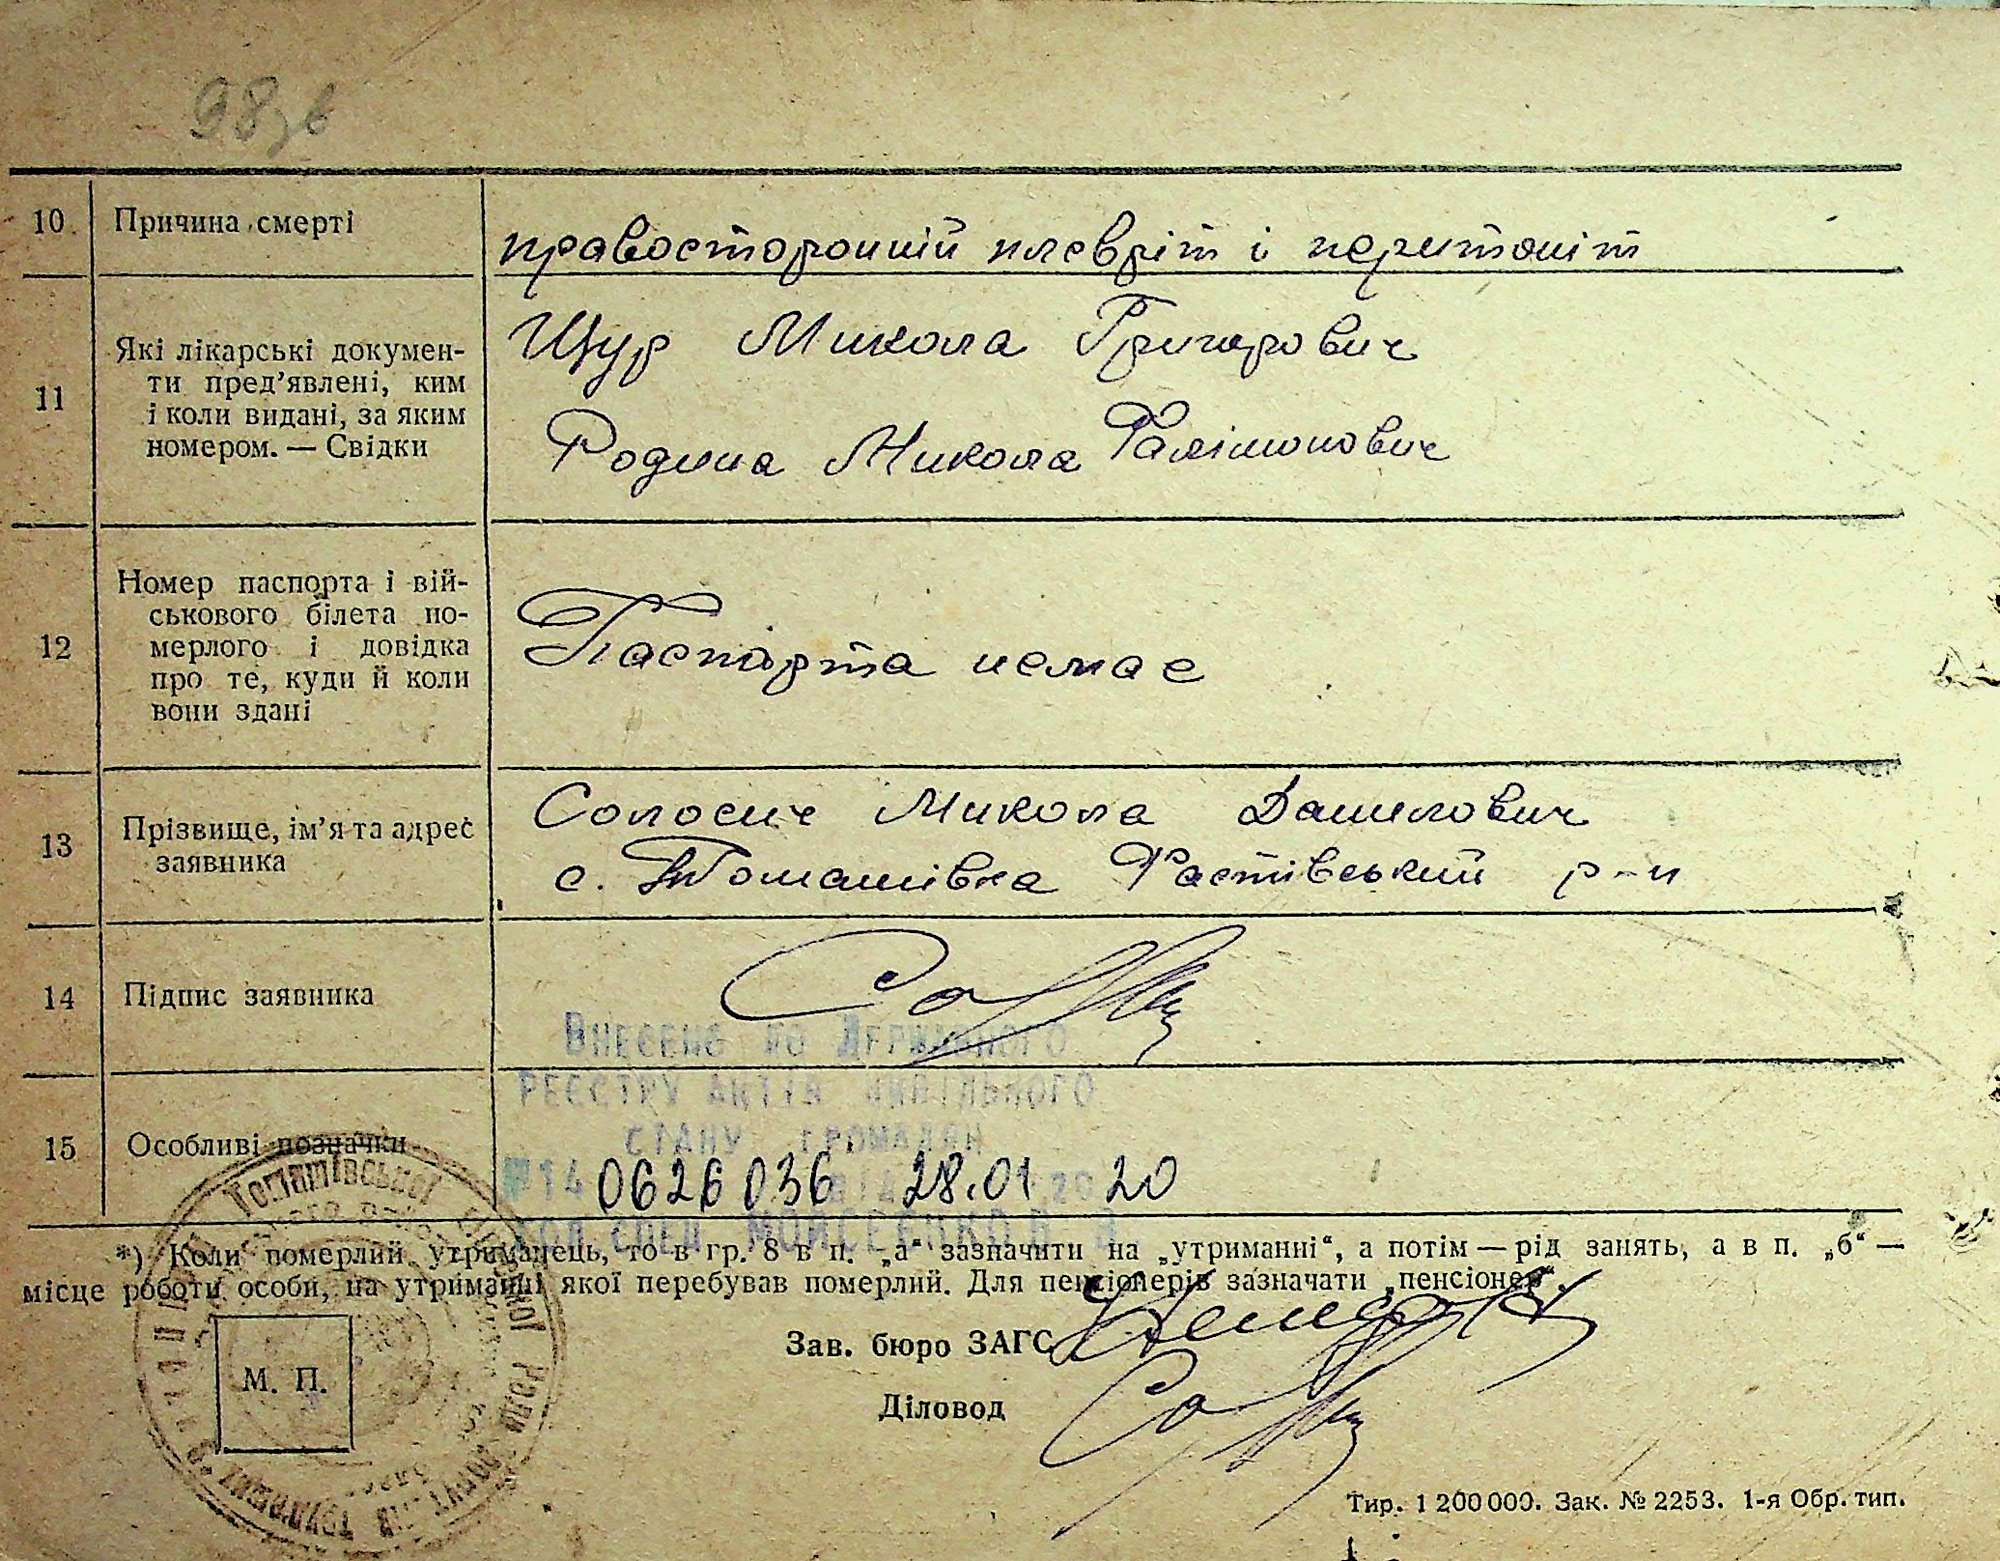 98зв
10 Причина смерті правосторонній плевріт і перитоніт
11 Які лікарські докумен-
ти пред'явлені, ким
і коли видані, за яким
номером. — Свідки
Щур Микола Григорович
Родина Микола Фалімонович
12 Номер паспорта і вій-
ськового білета по-
мерлого і довідка
про те, куди й коли
вони здані
Паспорта немає
13 Прізвище, ім'я та адрес
заявника
Солосич Микола Данилович
с. Томашівка Фастівський р-н
14 Підпис заявника
Внесено до Державного
реєстру актів цивільного
стану громадян
15 Особливі позначки
№14 0626036 28.01 2020
*) Коли померлий утриманець, то в гр. 8 в п. „а“ зазначити на „утриманні“, а потім — рід занять, а в п. „б“ —
місце роботи особи, на утриманні якої перебував померлий. Для пенсіонерів зазначати „пенсіонер“.
Зав. бюро ЗАГС
М. П.
Діловод
Томашівської сільської Ради депутатів трудящих
Тир. 1 200 000. Зак. № 2253. 1-я Обр. тип.